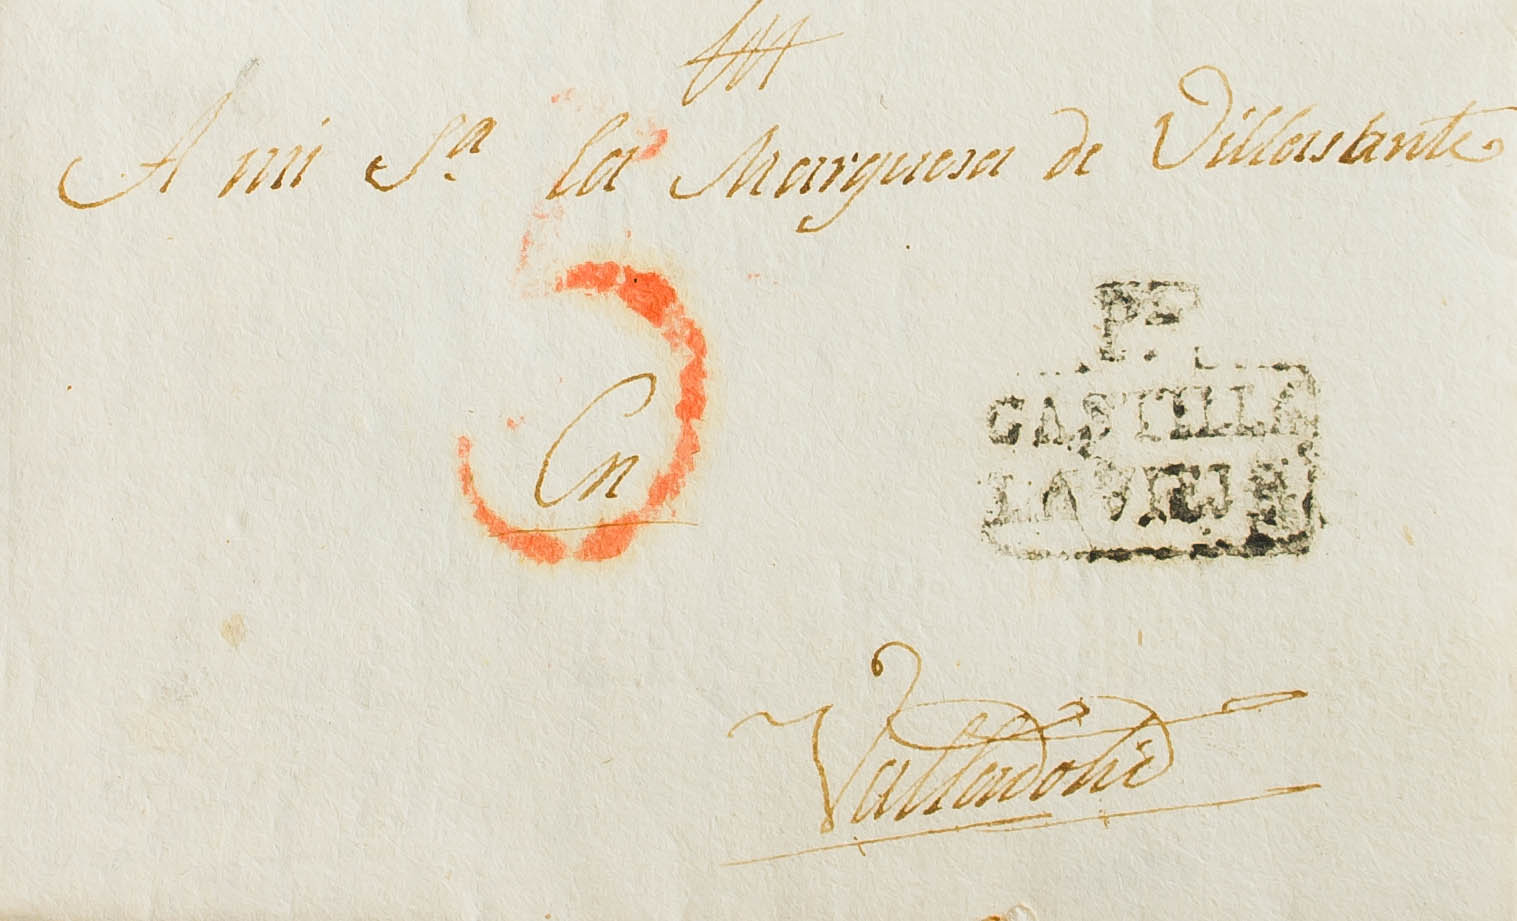 A mi Sra. la Marquesa de Villasante
5
En
CASTILLA
LA VIEJA
Valladolid